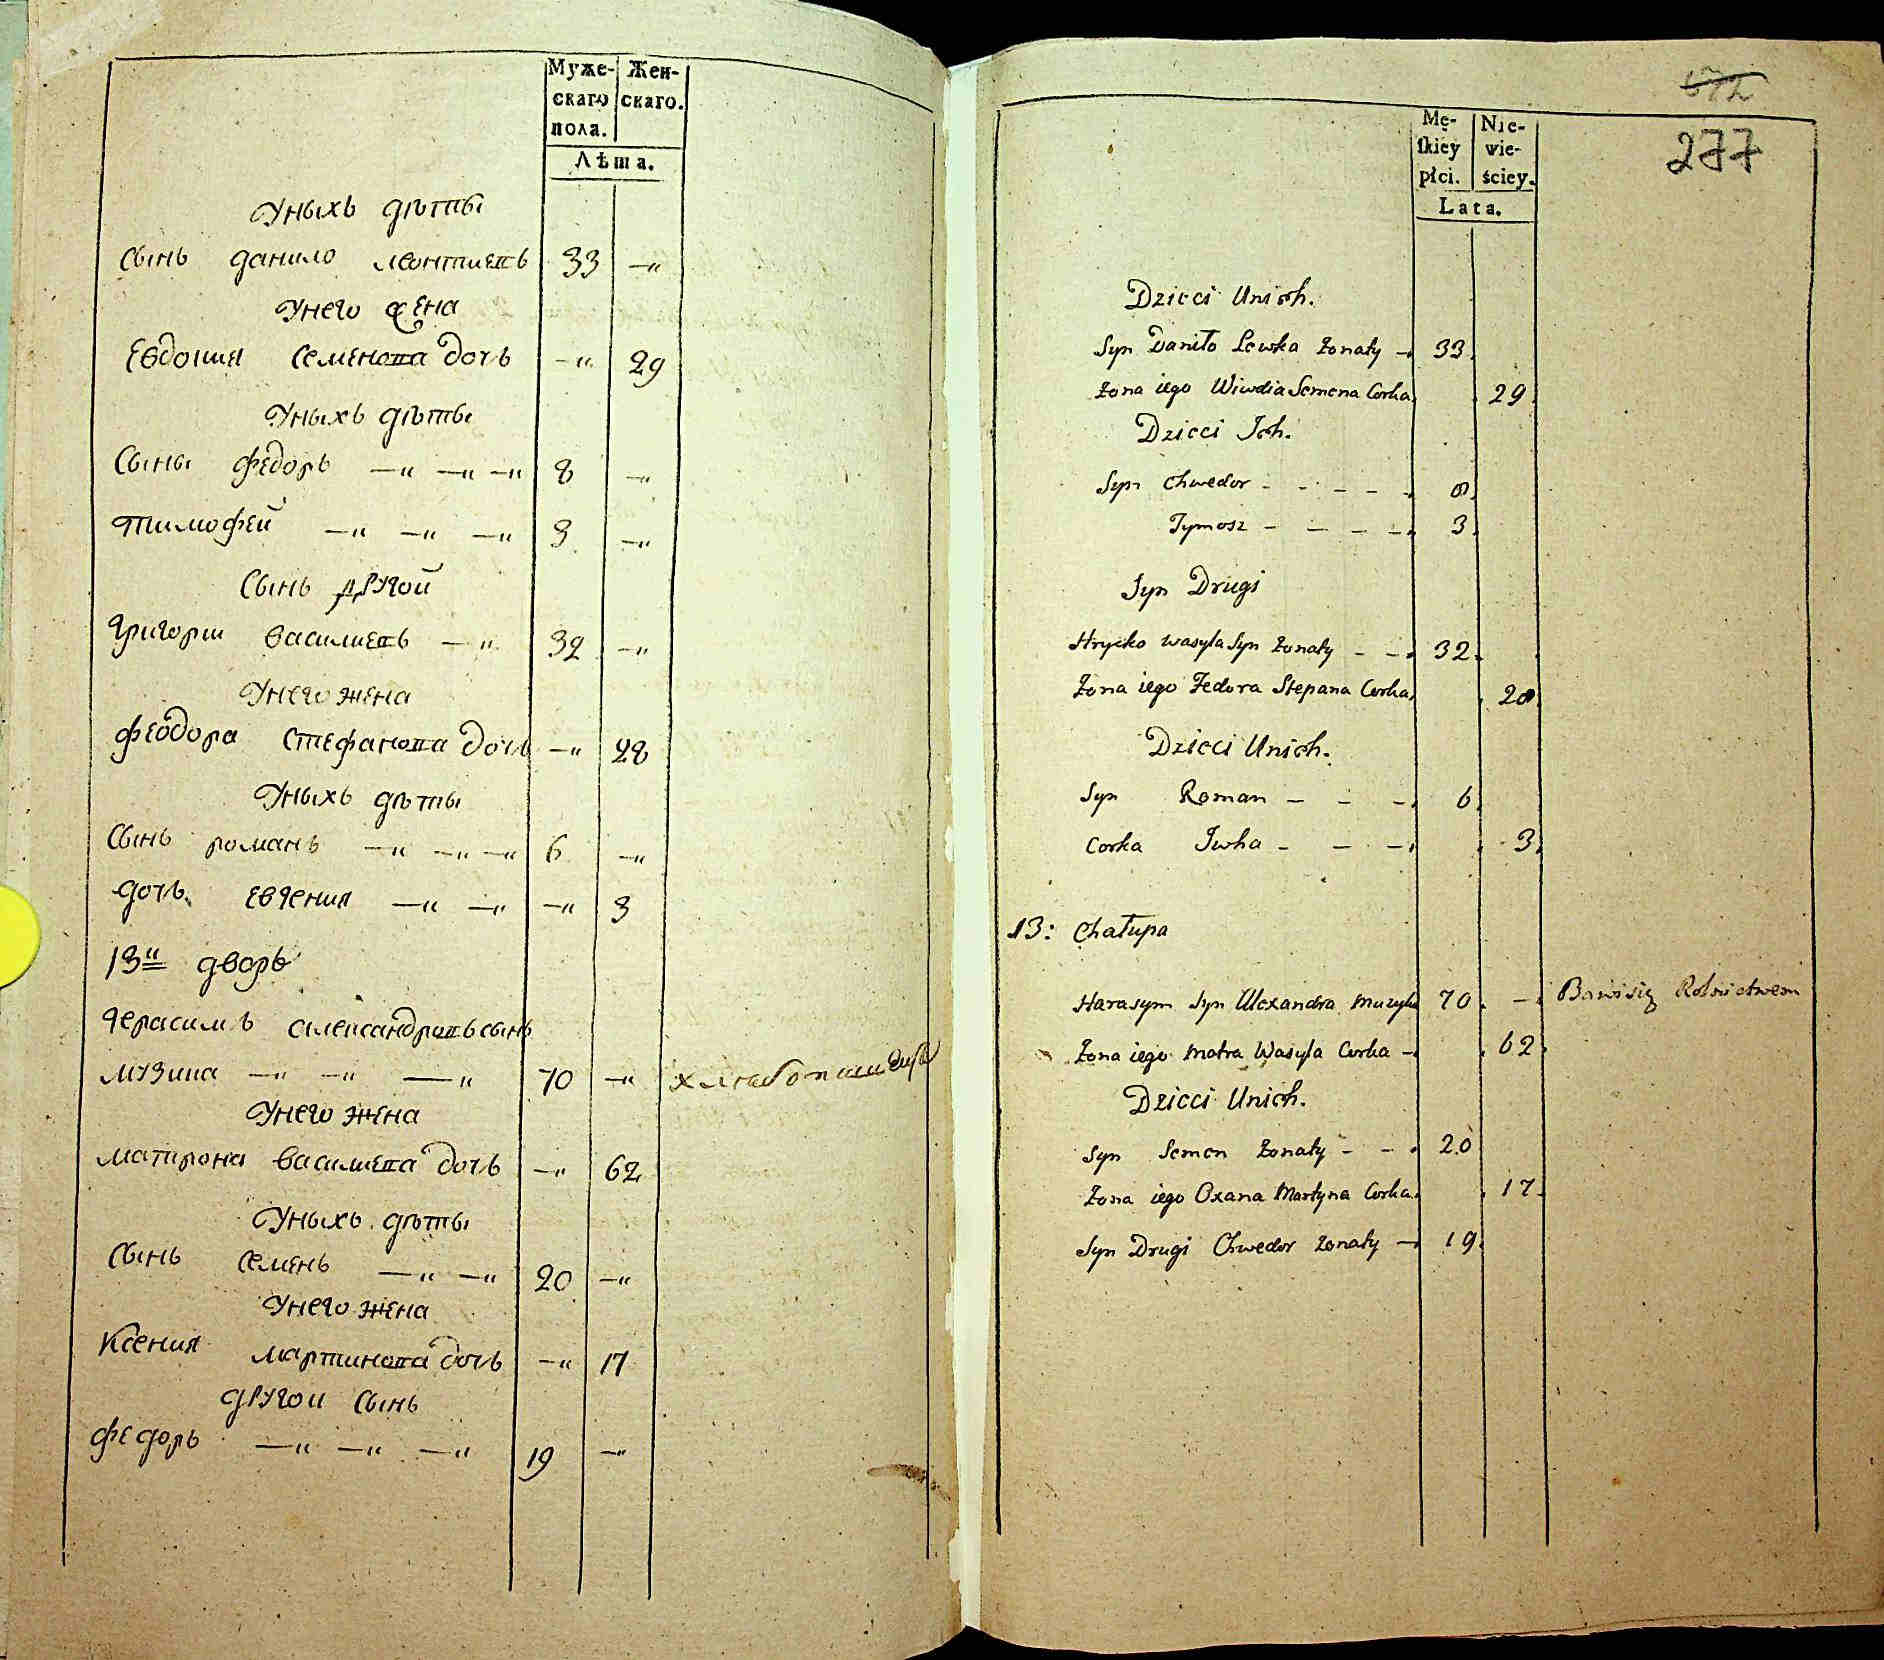 Муже-
скаго
пола.
Жен-
скаго.
Лѣта.
Уныхъ дѣты
Сынъ данило леонтиевъ 33 —„
Унего жена
Евдокия Семенова дочь —„ 29
Уныхъ дѣты
Сыны федоръ —„ —„ —„ 8 —„
тимофей —„ —„ —„ 3 —„
Сынъ другой
григори василиевъ —„ 32 —„
Унего жена
феодора Стефанова дочь —„ 28
Уныхъ дѣты
Сынъ романъ —„ —„ —„ 6 —„
дочь евгения —„ —„ —„ 3
13„ дворъ
герасимъ александровъ сынъ
музика —„ —„ —„ 70 —„ хлебопашецъ
Унего жена
матрона василиева дочь —„ 62
Уныхъ дѣты
Сынъ семенъ —„ —„ 20 —„
Унего жена
Ксения мартинова дочь —„ 17
другои сынъ
федоръ —„ —„ —„ 19 —„
672
277
Mę-
skiey
płci.
Nie-
wie-
ściey.
Lata.
Dzieci Unich.
Syn Daniło Lewka żonaty — 33
Żona iego Wiwdia Semena Corka 29
Dzieci Ich.
Syn Chwedor - - - - - 8
Tymosz - - - - 3
Syn Drugi
Hrycko Wasyla Syn żonaty - - 32
Żona iego Fedora Stepana Corka 28
Dzieci Unich.
Syn Roman - - - 6
Corka Iwha - - - 3
13: Chałupa
Harasym Syn Alexandra Muzyka 70 — Bawi się Rolnictwem
Żona iego Motra Wasyla Corka - 62
Dzieci Unich.
Syn Semen żonaty - - 20
Żona iego Oxana Martyna Corka 17
Syn Drugi Chwedor żonaty — 19